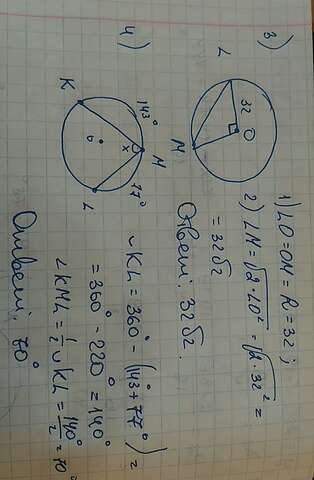 3)
L
32
O
M
1) LO=OM=R=32;
2) LM=√2·LO² = √2·32² =
= 32√2
Ответ: 32√2.
4)
K
143°
M
x
O
77°
L
∪KL=360° - (143°+77°) =
= 360° - 220° = 140°
∠KML = 1/2 ∪KL = 140°/2 = 70°
Ответ: 70°